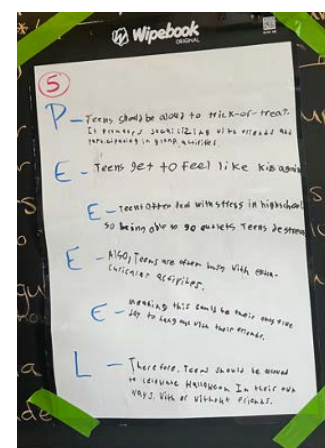 Wipebook
ORIGINAL
5
P - Teens should be aloud to trick-or-treat.
It promotes socializing with friends and
participating in group activities
E - Teens get to feel like kids again
E - Teens often deal with stress in highschool
so being able to go outlets Teens destress
E - Also, Teens are often busy with extra-
curicular activites.
E - meaning this could be their only free
day to hang out with their friends.
L - Therefore, Teens should be allowed
to celebrate Halloween In their own
ways. With or without friends.